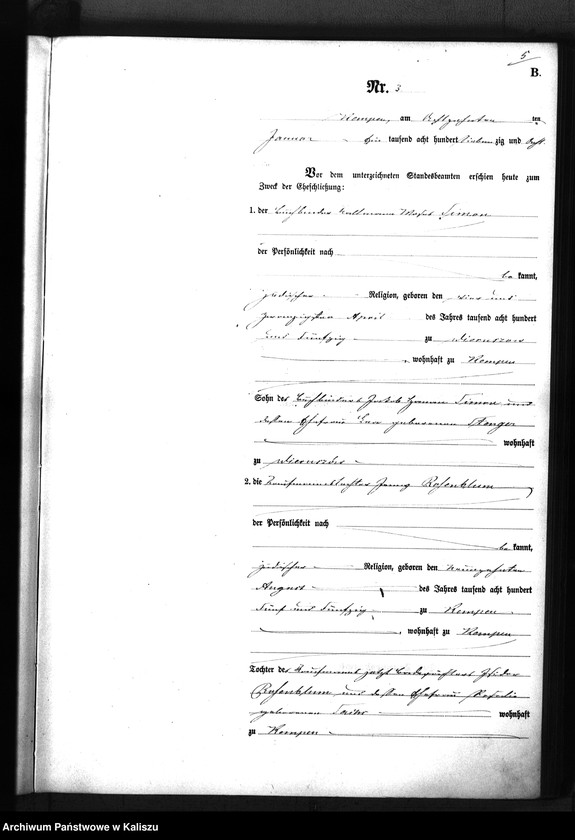 5
B.
Nr. 3
Kempen, am Achtzehnten ten
Januar tausend acht hundert Sieben zig und Acht
Vor dem unterzeichneten Standesbeamten erschien heute zum
Zweck der Eheschließung:
1. der Buchbinder Moses Simon
der Persönlichkeit nach
be kannt,
jüdischer Religion, geboren den vier und
zwanzigsten April des Jahres tausend acht hundert
und Fünfzig zu
, wohnhaft zu Kempen
Sohn des Buchbinders Jakob Simon und
dessen Ehefrau geborenen
wohnhaft
zu
2. die Kaufmannstochter Jenny Rosenblum
der Persönlichkeit nach
be kannt,
jüdischer Religion, geboren den Neunzehnten
August des Jahres tausend acht hundert
Fünf und Fünfzig zu Kempen
, wohnhaft zu Kempen
Tochter des Kaufmanns jetzt Isidor
Rosenblum und dessen Ehefrau Rosalie
geborenen wohnhaft
zu Kempen
Archiwum Państwowe w Kaliszu